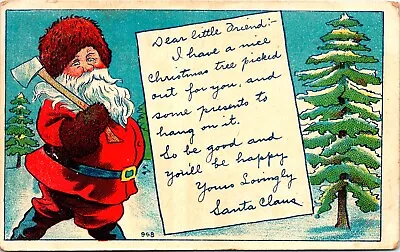 Dear little Friend:-
I have a nice
Christmas tree picked
out for you, and
some presents to
hang on it.
So be good and
you'll be happy
Yours Lovingly
Santa Claus
968